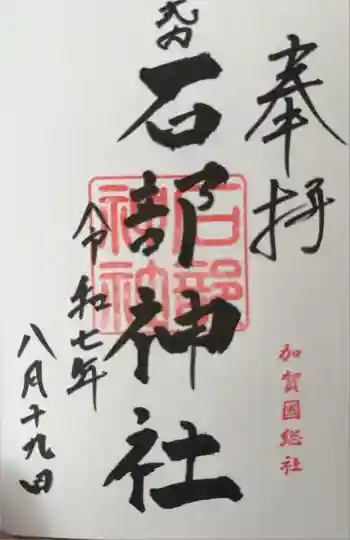 奉拝
加賀國総社
式内
石部神社
石部
神社
令和七年
八月十九日